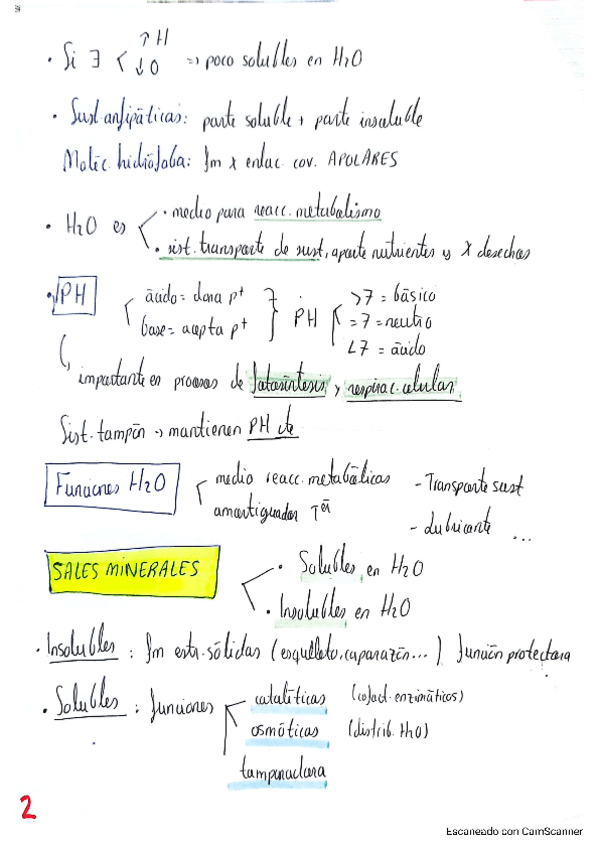 · Si ∃ < ↑H
↓O ⇒ poco solubles en H2O
· Sust. anfipáticas: parte soluble + parte insoluble
Moléc. hidrófoba: fm x enlac. cov. APOLARES
· H2O es < · medio para reacc. metabolismo
· sist. transporte de sust, aporte nutrientes y X desechos
· PH
ácido = dona p+
base = acepta p+
PH
>7 = básico
=7 = neutro
<7 = ácido
importante en procesos de fotosíntesis y respirac. celular
Sist. tampón → mantienen PH cte
Funciones H2O
medio reacc. metabólicas
amortiguador Tª
- Transporte sust
- Lubricante ...
SALES MINERALES
· Solubles en H2O
· Insolubles en H2O
· Insolubles: fm estr. sólidas (esqueleto, caparazón...) función protectora
· Solubles: funciones
catalíticas (cofact. enzimáticos)
osmóticas (distrib. H2O)
tamponadora
2
Escaneado con CamScanner